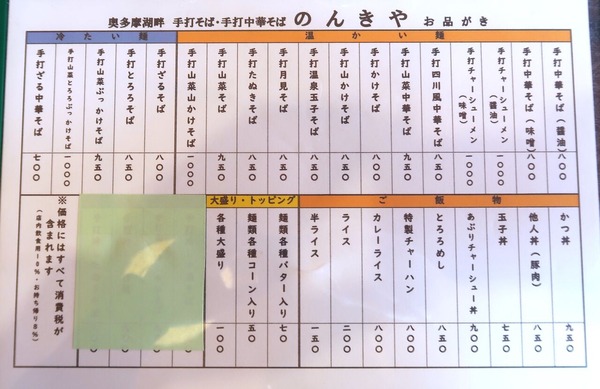 奥多摩湖畔 手打そば・手打中華そば のんきや お品がき
温かい麺
手打中華そば(醤油) 八〇〇
手打中華そば(味噌) 八〇〇
手打チャーシューメン(醤油) 一〇〇〇
手打チャーシューメン(味噌) 一〇〇〇
手打四川風中華そば 八五〇
手打山菜中華そば 九五〇
手打かけそば 八〇〇
手打山かけそば 八五〇
手打温泉玉子そば 八五〇
手打月見そば 八五〇
手打たぬきそば 八五〇
手打山菜そば 九五〇
手打山菜山かけそば 一〇〇〇
冷たい麺
手打ざるそば 八〇〇
手打とろろそば 八五〇
手打山菜ぶっかけそば 九五〇
手打山菜とろろぶっかけそば 一〇〇〇
手打ざる中華そば 七〇〇
ご飯物
かつ丼 九五〇
他人丼(豚肉) 八五〇
玉子丼 七五〇
あぶりチャーシュー丼 九〇〇
とろろめし 八五〇
特製チャーハン 八〇〇
カレーライス 八〇〇
ライス 二〇〇
半ライス 一五〇
大盛り・トッピング
麺類各種バター入り 七〇
麺類各種コーン入り 五〇
各種大盛り 一〇〇
※価格にはすべて消費税が
含まれます
(店内飲食用10%・お持ち帰り8%)